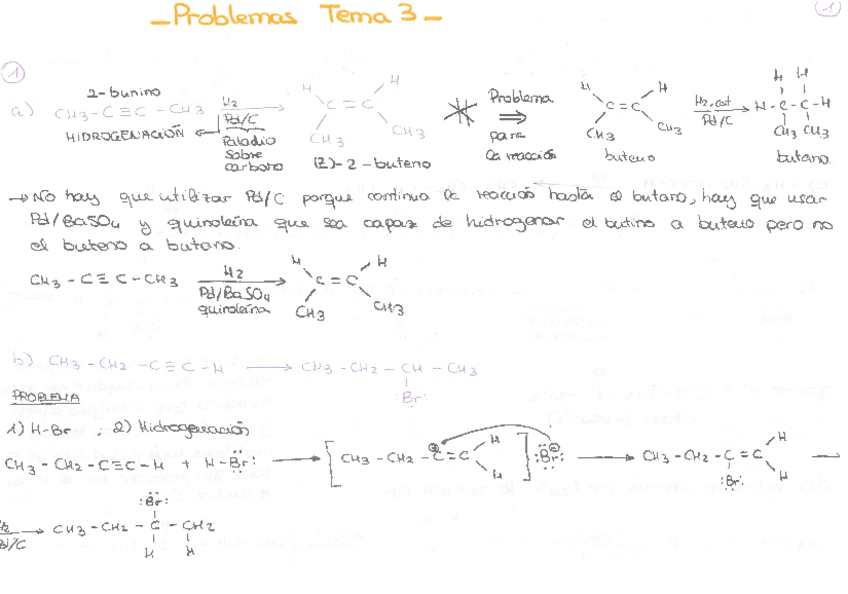 Problemas Tema 3
1
1
2-bunino
a) CH3 - C≡C - CH3 H2 Pd/C
HIDROGENACIÓN
Paladio sobre carbono
H H C=C CH3 CH3
(Z)-2-buteno
Problema para la reacción
H H C=C CH3 CH3
buteno
H2, cat Pd/C
H H H-C-C-H CH3 CH3
butano
→ No hay que utilizar Pd/C porque continua la reacción hasta el butano, hay que usar
Pd/BaSO4 y quinoleína que sea capaz de hidrogenar el butino a buteno pero no
el buteno a butano.
CH3 - C≡C - CH3 H2 Pd/BaSO4 quinoleína H H C=C CH3 CH3
b) CH3 - CH2 - C≡C - H → CH3 - CH2 - CH - CH3
:Br:
PROBLEMA
1) H-Br , 2) Hidrogenación
CH3 - CH2 - C≡C - H + H - Br: → [CH3 - CH2 - C⊕=C H H] :Br:⊖ → CH3 - CH2 - C=C H H
:Br:
:Br:
→ CH3 - CH2 - C - CH2
H H